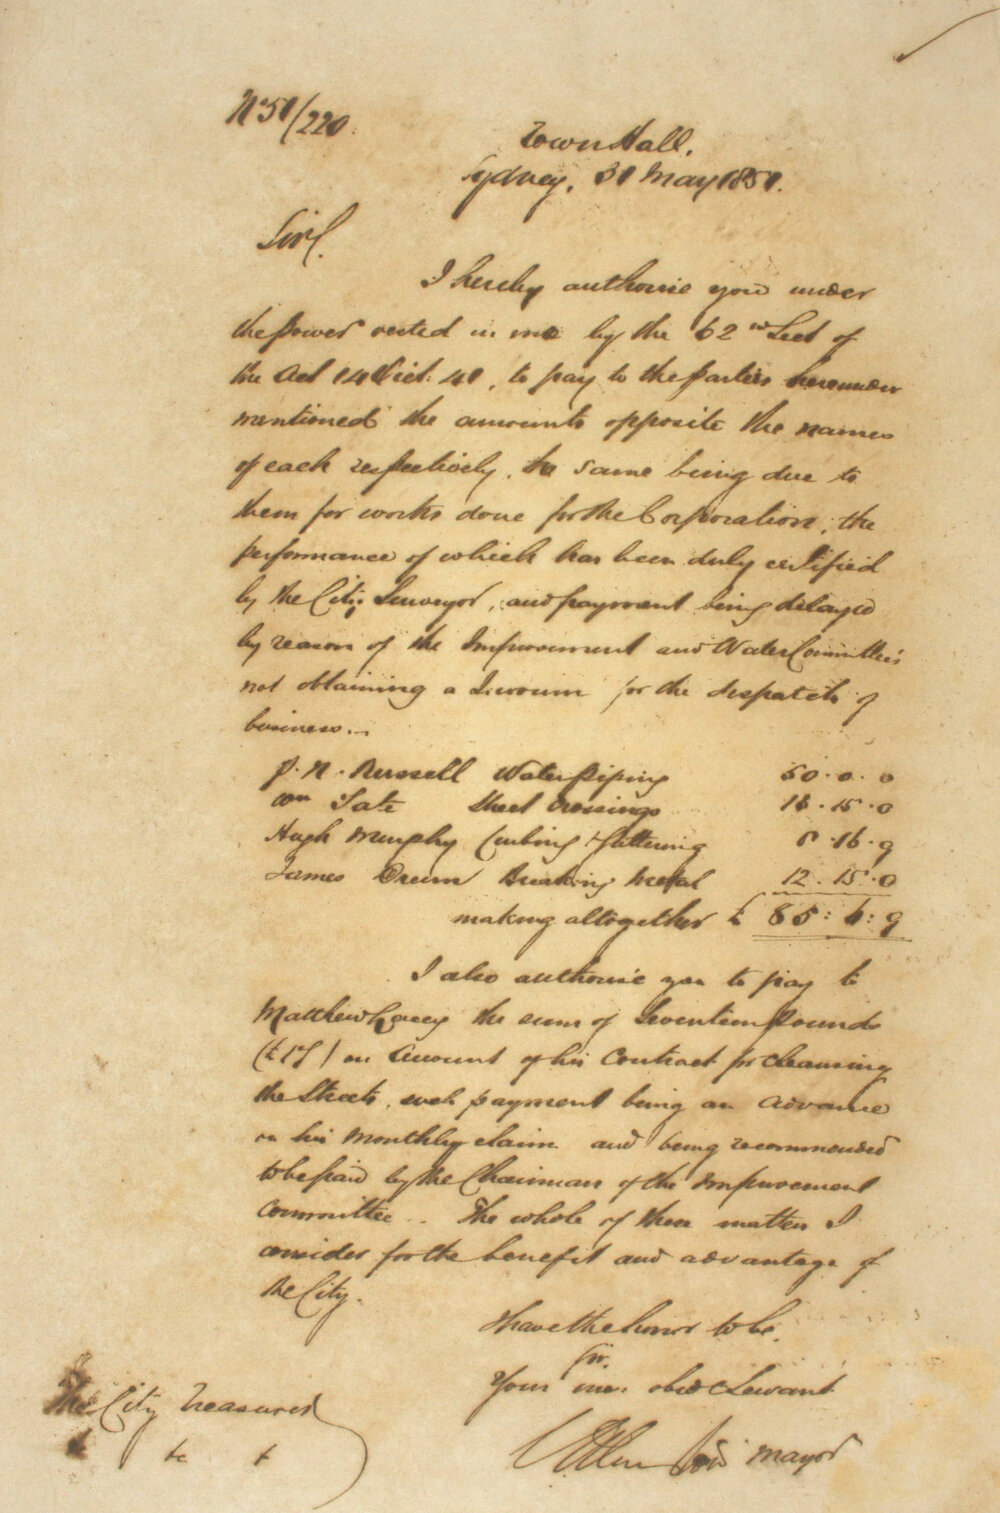 No 51/220.
Town Hall.
Sydney, 31 May 1851.
Sir,
I hereby authorise you under
the power vested in me by the 62nd Sect of
the Act 14 Vict: 41, to pay to the parties hereunder
mentioned the amounts opposite the names
of each respectively, the same being due to
them for works done for the Corporation, the
performance of which has been duly certified
by the City Surveyor, and payment being delayed
by reason of the Improvement and Water Committees
not obtaining a Quorum for the despatch of
business.—
P. N. Russell Water Piping 50. 0. 0
Wm Tate Street Crossings 13. 15. 0
Hugh Murphy Curbing & Guttering 8. 16. 9
James Drum Breaking Metal 12. 15. 0
making altogether £ 85: 6: 9
I also authorise you to pay to
Matthew Lacey the sum of Seventeen Pounds
(£17) on Account of his Contract for Cleansing
the Streets, such payment being an Advance
on his Monthly claim and being recommended
to be paid by the Chairman of the Improvement
Committee.. The whole of these matters I
consider for the benefit and advantage of
the City.
I have the honor to be,
Sir.
Your obed Servant
Mayor
The City Treasurer
&c &c &c